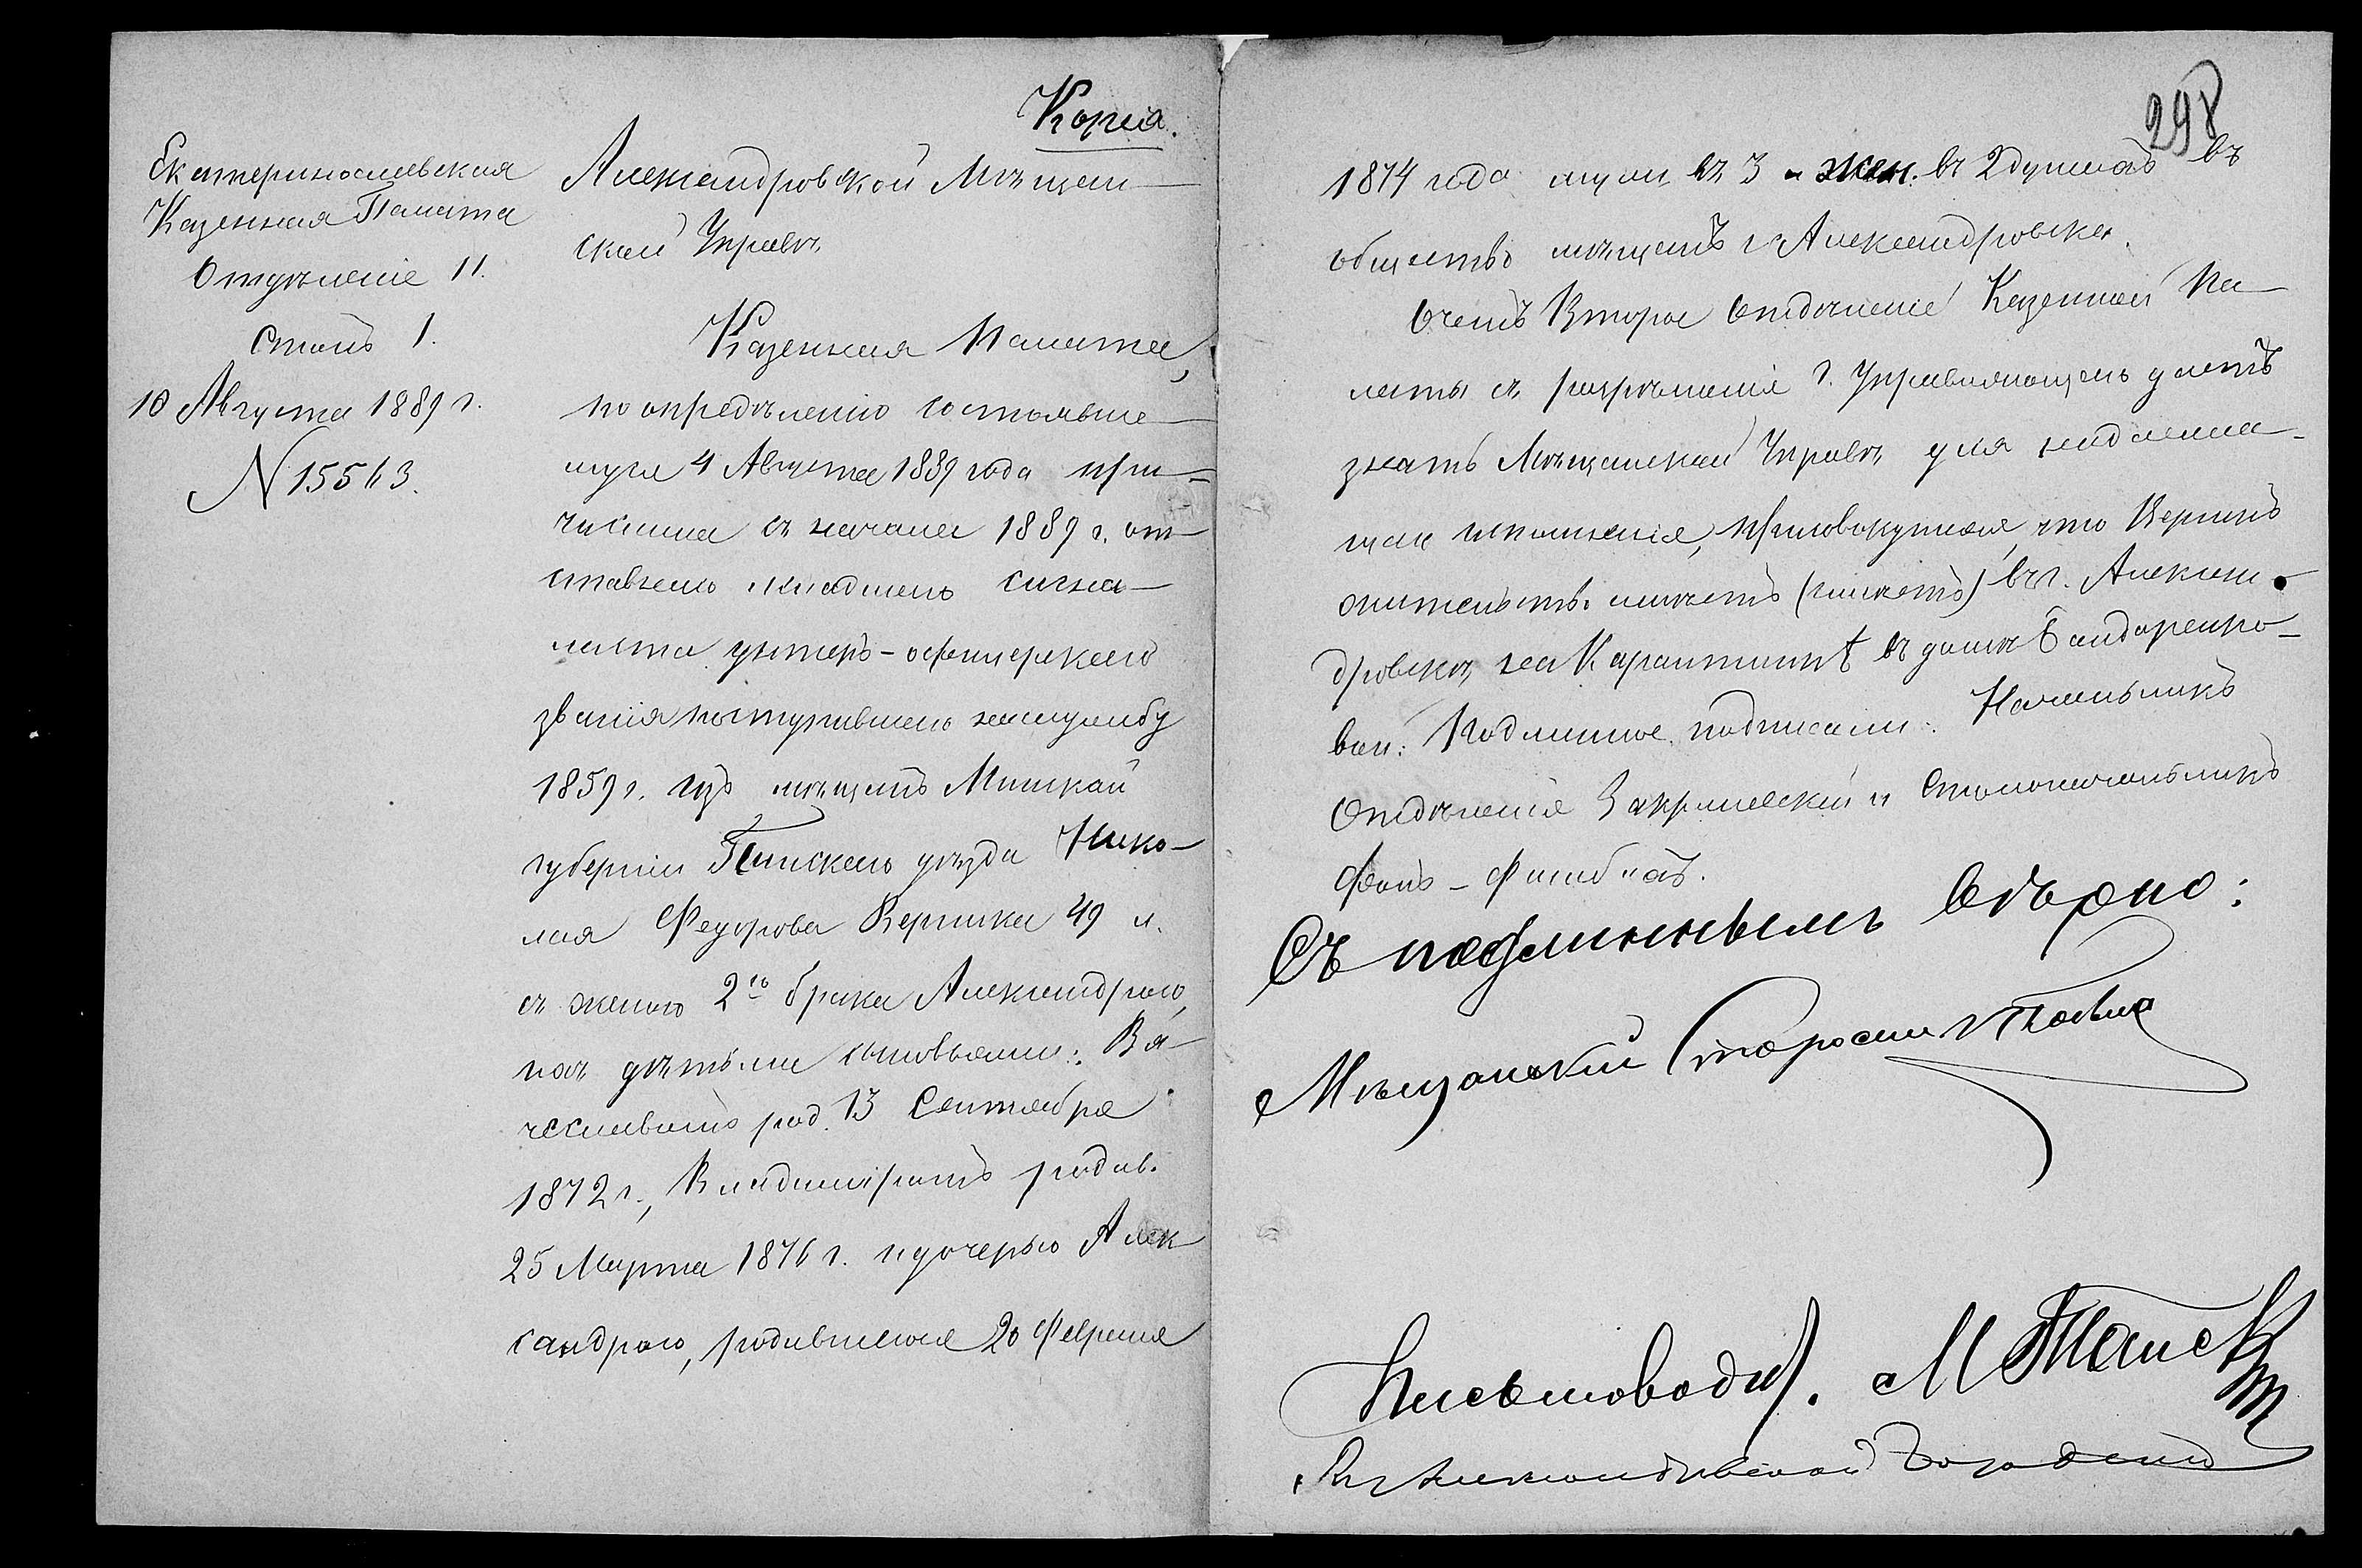 Копія.
Екатеринославская
Казенная Палата
Отдѣленіе II.
Столъ I.
10 Августа 1889 г.
N 15563.
Александровской Мѣщан—
ской Управѣ
Казенная Палата,
по опредѣленію состоявше—
муся 4 Августа 1889 года при—
числила съ начала 1889 г. от—
ставного младшаго сигна—
листа унтеръ-офицерскаго
званія поступившаго на службу
1859 г. изъ мѣщанъ Минской
губерніи Пинскаго уѣзда Нико—
лая Федорова Верника 49 л.
съ женою 2го брака Александрою,
и съ дѣтьми сыновьями: Вя—
чеславомъ род. 13 Сентября
1872 г., Владиміромъ родив.
25 Марта 1876 г. и дочерью Алек
сандрою, родившеюся 20 Февраля
298
1874 года муж. въ 3 и жен. въ 2 душахъ въ
общество мѣщанъ г. Александровска.
О чемъ Второе Отдѣленіе Казенной Па—
латы съ разрѣшенія Г. Управляющаго даетъ
знать Мѣщанской Управѣ для надлежа—
щаго исполненія, присовокупляя, что Верникъ
жительство имѣетъ в г. Алексан—
дровскѣ, на Карантинѣ въ домѣ Бандоренко—
вой. Подлинное подписали: Начальникъ
Отдѣленія и Столоначальникъ
Съ подлиннымъ вѣрно:
Мѣщанскій Староста
Письмоводит.